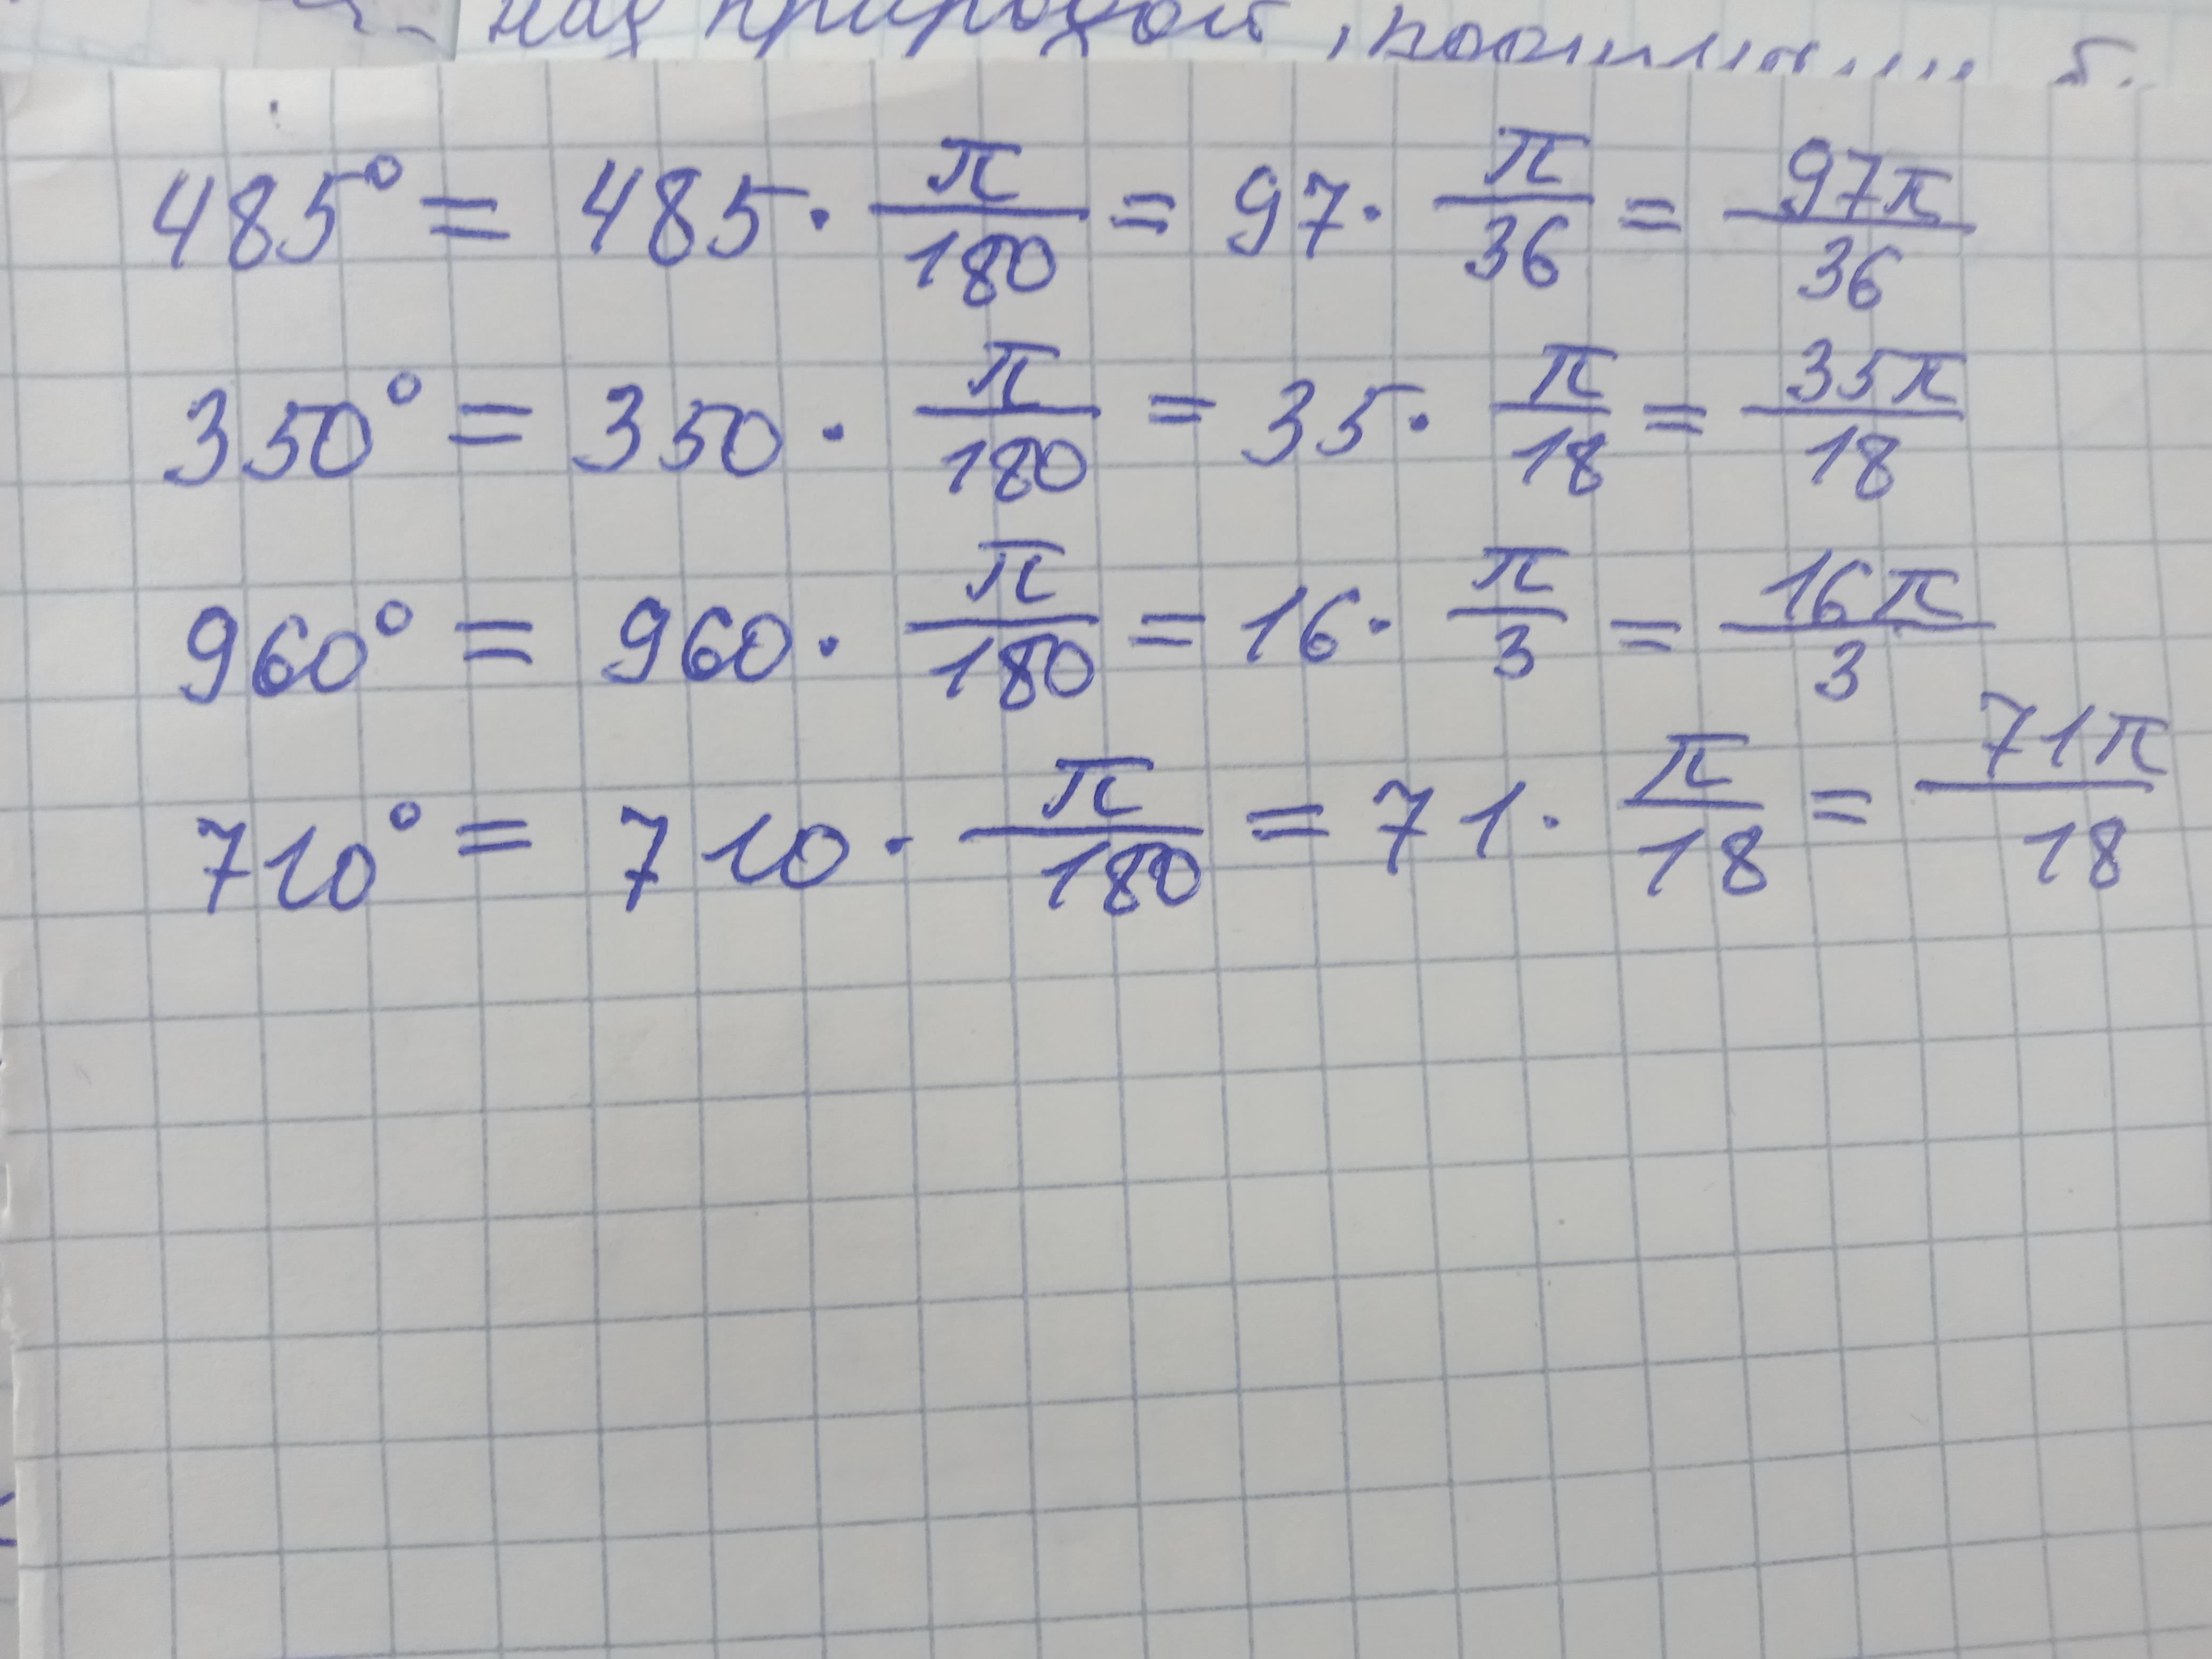 над природой,
485° = 485 · π/180 = 97 · π/36 = 97π/36
350° = 350 · π/180 = 35 · π/18 = 35π/18
960° = 960 · π/180 = 16 · π/3 = 16π/3
710° = 710 · π/180 = 71 · π/18 = 71π/18